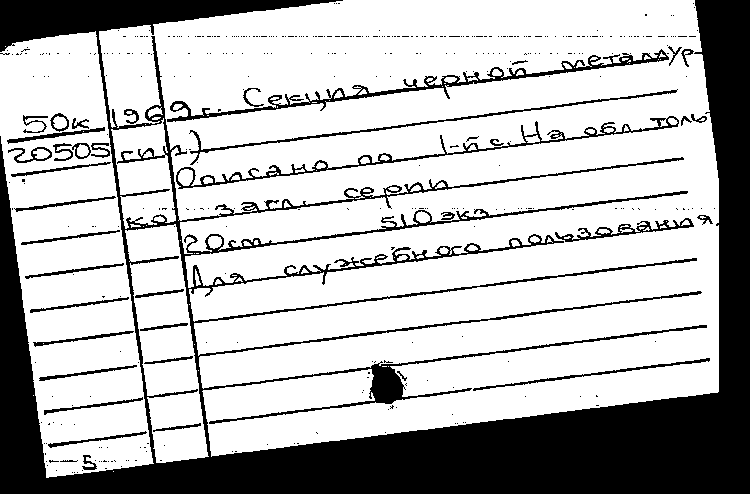 50к 1969 г. Секция черной металлур-
20505 гии)
Описано по 1-й с. На обл. толь-
ко загл. серии
20см. 510 экз
Для служебного пользования.
5